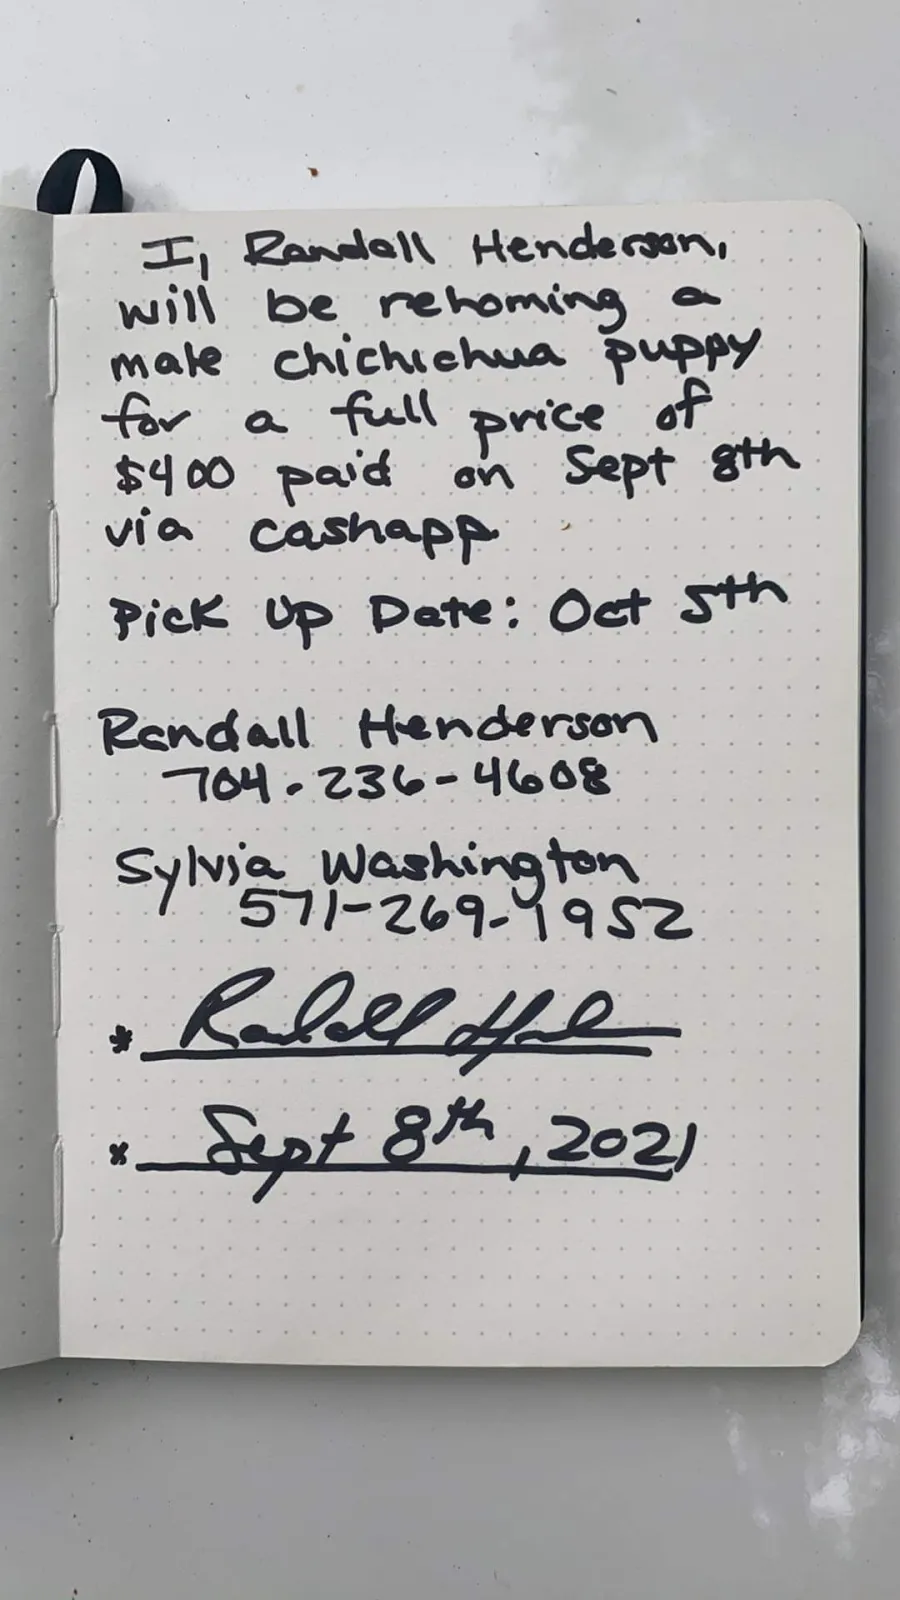 I, Randall Henderson,
will be rehoming a
male chichichua puppy
for a full price of
$400 paid on Sept 8th
via cashapp
Pick Up Date: Oct 5th
Randall Henderson
704-236-4608
Sylvia Washington
571-269-1952
* Randall Henderson
* Sept 8th, 2021